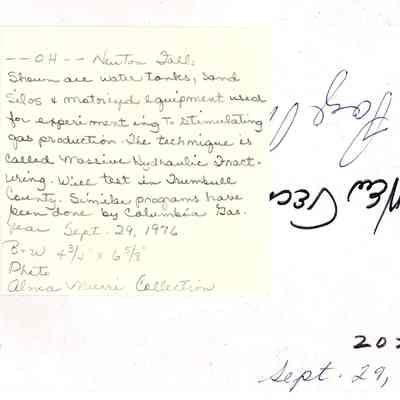 --OH-- Newton Falls
Shown are water tanks, sand
silos & motorized equipment used
for experimenting to stimulating
gas production. The technique is
called Massive Hydraulic Fract-
uring. Will test in Trumbull
County. Similar programs have
been done by Columbia Gas.
Year Sept. 29, 1976
B+W 4 3/4" x 6 5/8"
Photo
Alma Collection
Page
New
202
Sept. 29,